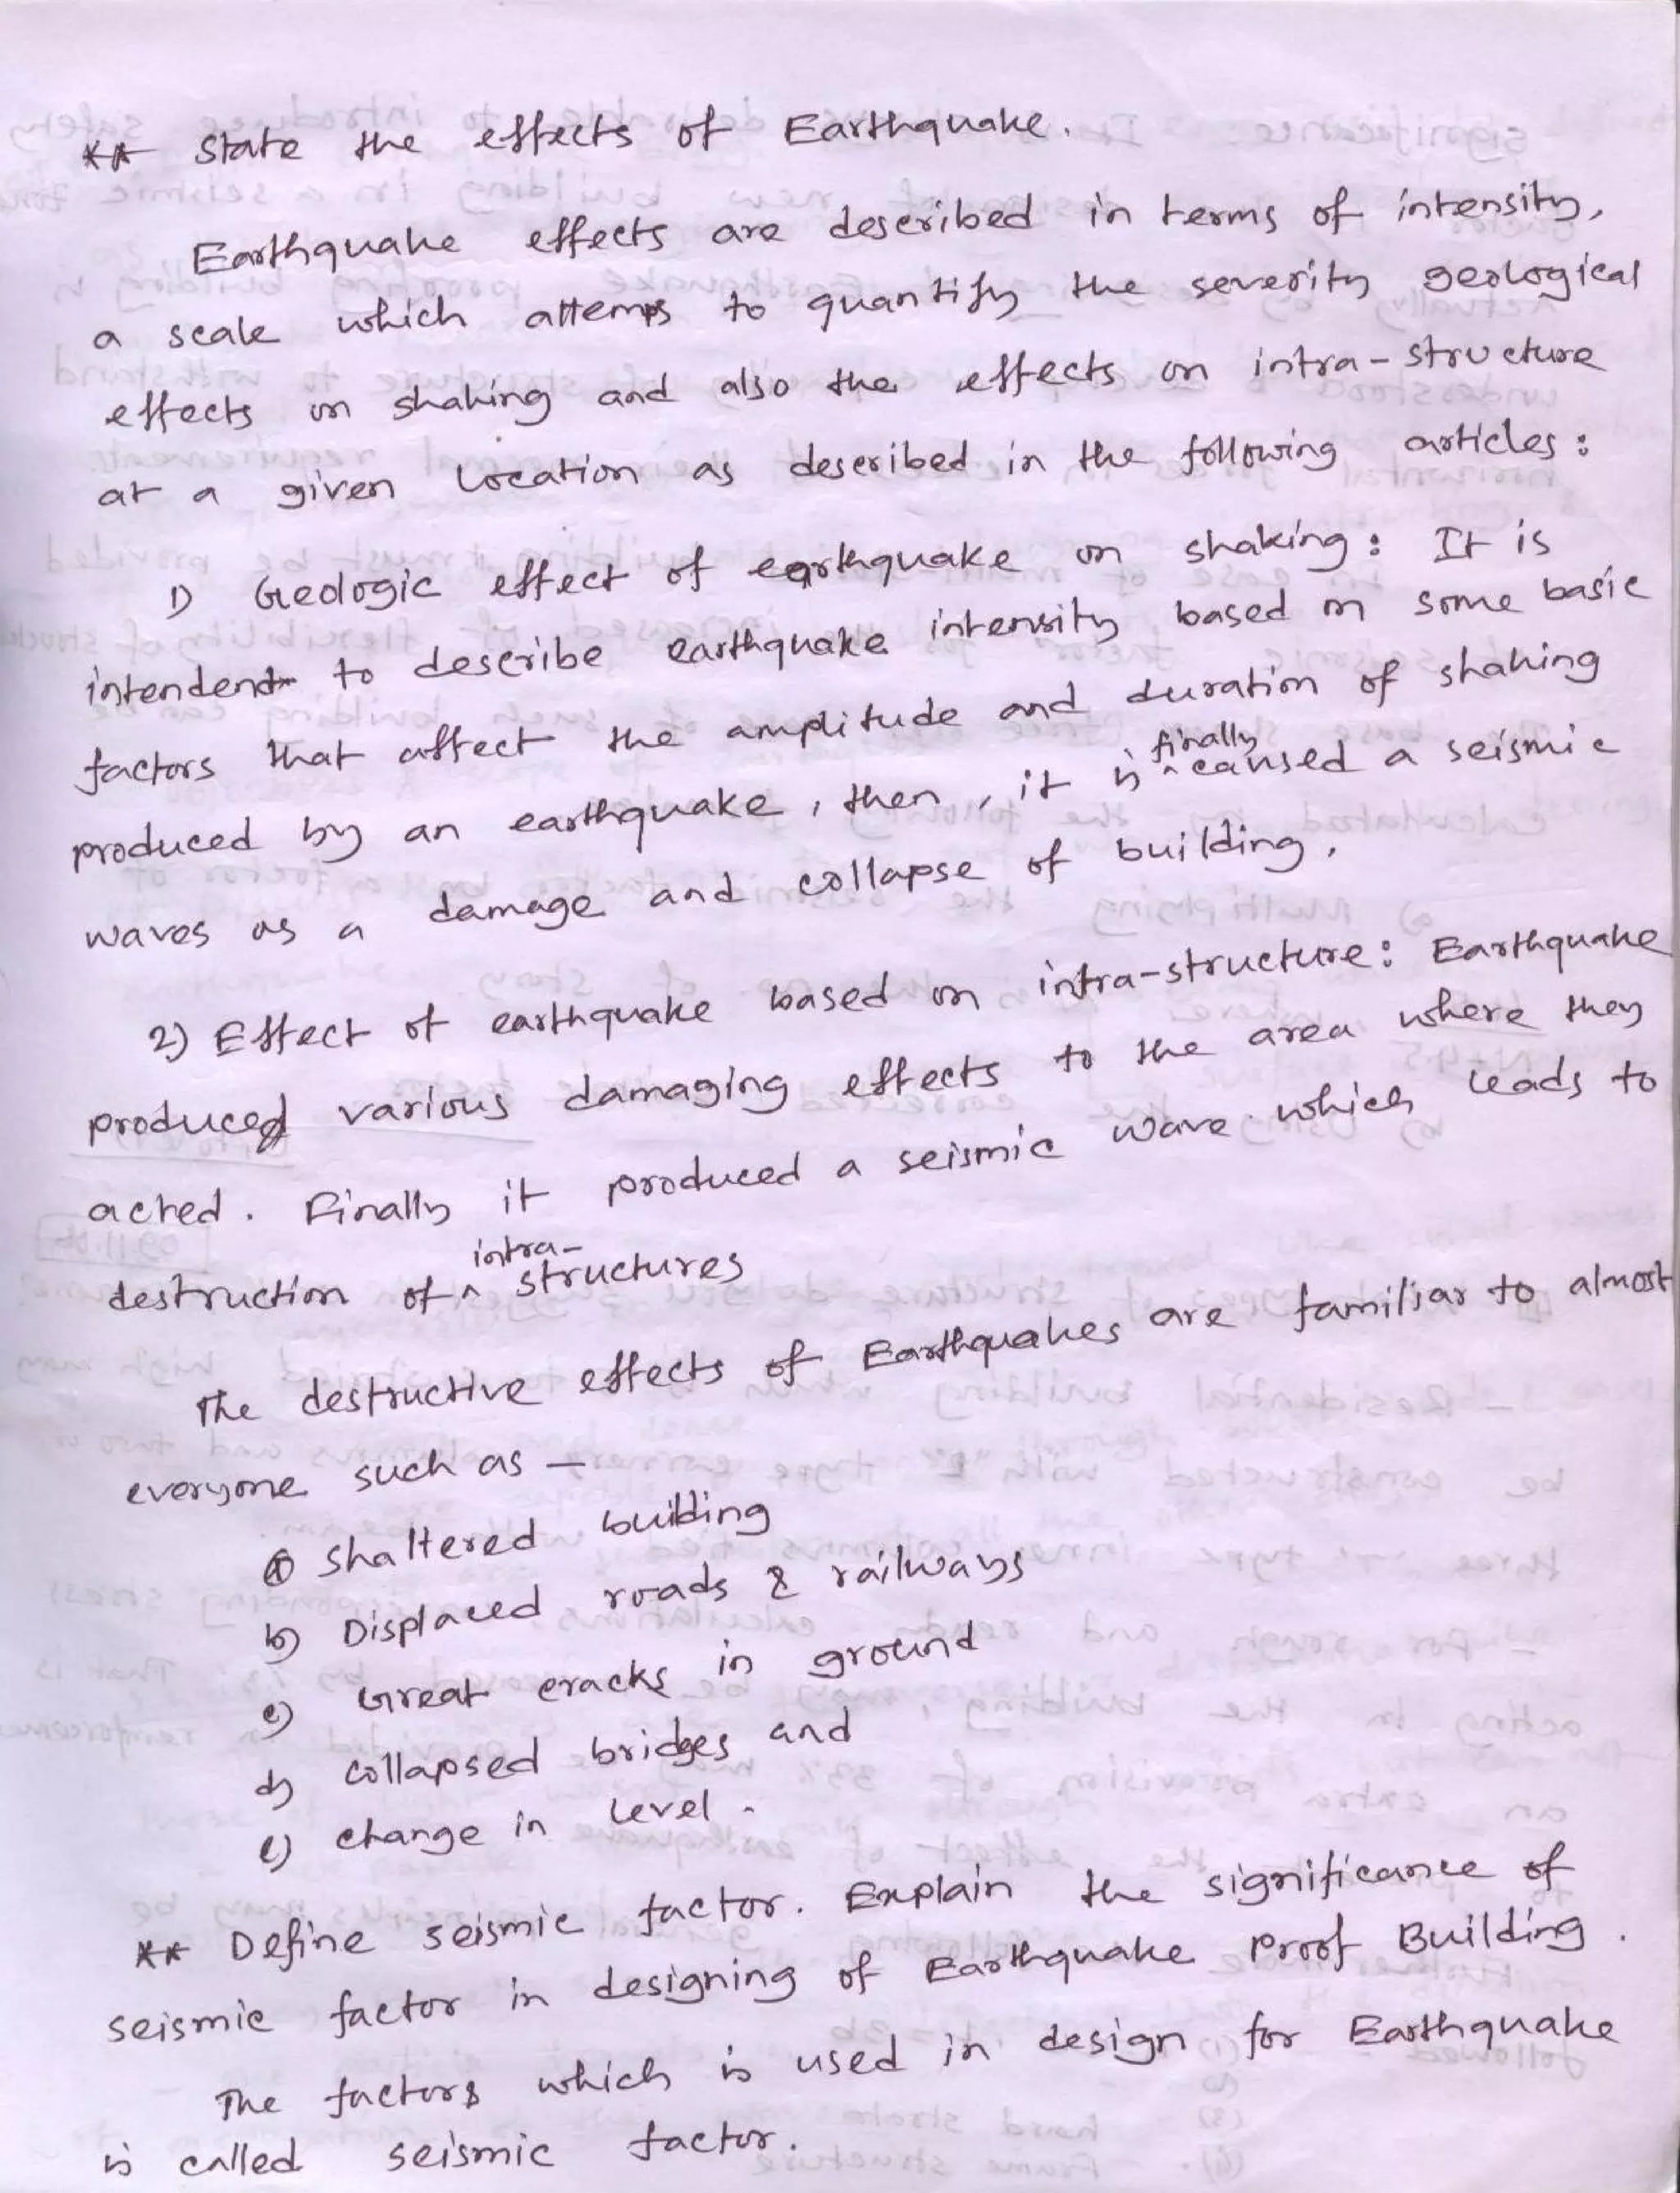 ** State the effects of Earthquake.
Earthquake effects are described in terms of intensity,
a scale which attemps to quantify the severity geological
effects on shaking and also the effects on intra-structure
at a given location as described in the following articles:
1) Geologic effect of earthquake on shaking: It is
intendent to describe earthquake intensity based on some basic
factors that affect the amplitude and duration of shaking
produced by an earthquake, then, it is ^ finally caused a seismic
waves as a damage and collapse of building.
2) Effect of earthquake based on intra-structure: Earthquake
produced various damaging effects to the area where they
acted. Finally it produced a seismic wave which leads to
destruction of ^ intra- structures
The destructive effects of Earthquakes are familiar to almost
everyone such as —
a) Shaltered building
b) Displaced roads & railways
c) Great cracks in ground
d) Collapsed bridges and
e) change in level.
** Define seismic factor. Explain the significance of
seismic factor in designing of Earthquake Proof Building.
The factors which is used in design for Earthquake
is called seismic factor.